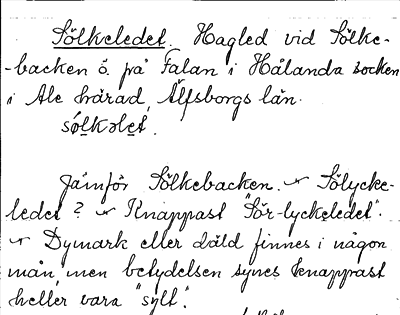 Sölkeledet. Hagled vid Sölke-
-backen ö. på Falan i Hålanda socken
i Ale härad, Älfsborgs län.
sö̀lkəlèt.
Jämför Sölkebacken. Sölycke-
ledet? Knappast "Sör-lyckeledet".
Dymark eller däld finnes i någon
mån, men betydelsen synes knappast
heller vara "sylt".